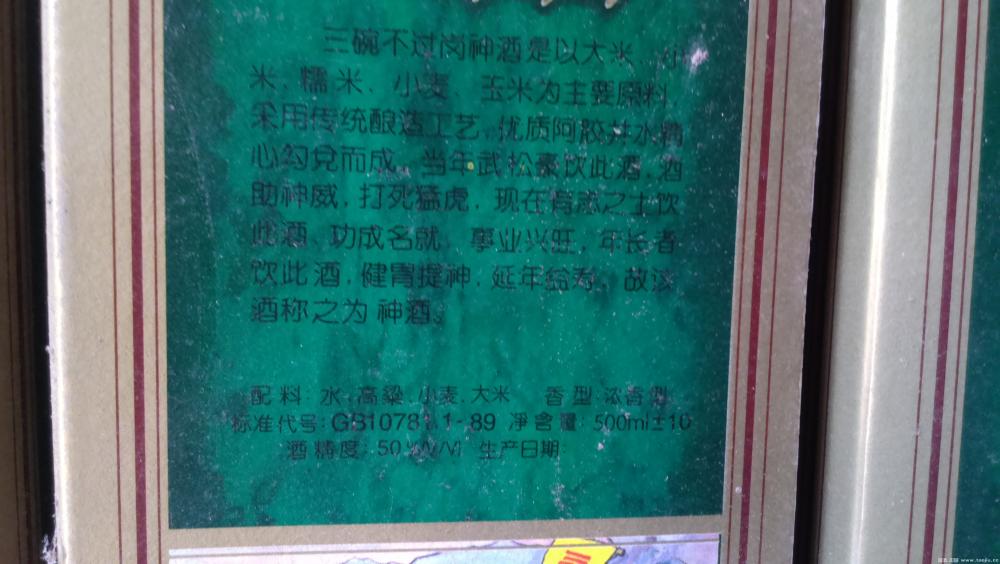 三碗不过岗神酒是以大米、小
米、糯米、小麦、玉米为主要原料,
采用传统酿造工艺,优质阿胶井水精
心勾兑而成。当年武松豪饮此酒,酒
助神威,打死猛虎,现在有志之士饮
此酒、功成名就,事业兴旺,年长者
饮此酒,健胃提神,延年益寿。故该
酒称之为神酒。
配料:水、高粱、小麦、大米 香型:浓香型
标准代号:GB10781.1-89 淨含量:500ml±10
酒精度:50%V/V 生产日期:
www.taojiu.cn